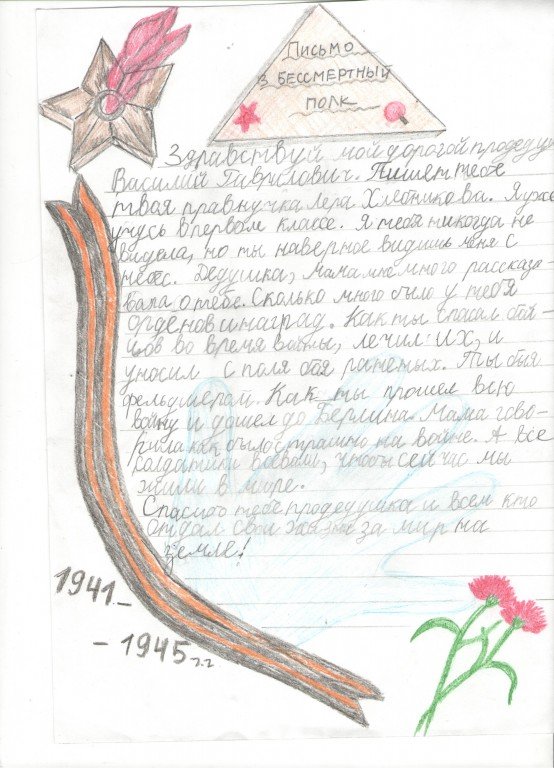 Письмо
в бессмертный
полк
Здравствуй мой дорогой продедуш
Василий Гаврилович. Пишет тебе
твоя правнучка Лера Хлебникова. Я уже
учусь в первом классе. Я тебя никогда не
видела, но ты наверное видишь меня с
небес. Дедушка, мама мне много рассказы-
вала о тебе. Сколько много было у тебя
орденов и наград. Как ты спасал бой-
цов во время войны, лечил их, и
уносил с поля боя раненых. Ты был
фельдшерам. Как ты прошел всю
войну и дошел до Берлина. Мама гово-
рила как было страшно на войне. А все
солдатики воевали, чтобы сейчас мы
жили в мире.
Спасибо тебе продедушка и всем кто
отдал свои жизни за мир на
земле!
1941-
- 1945 г.г